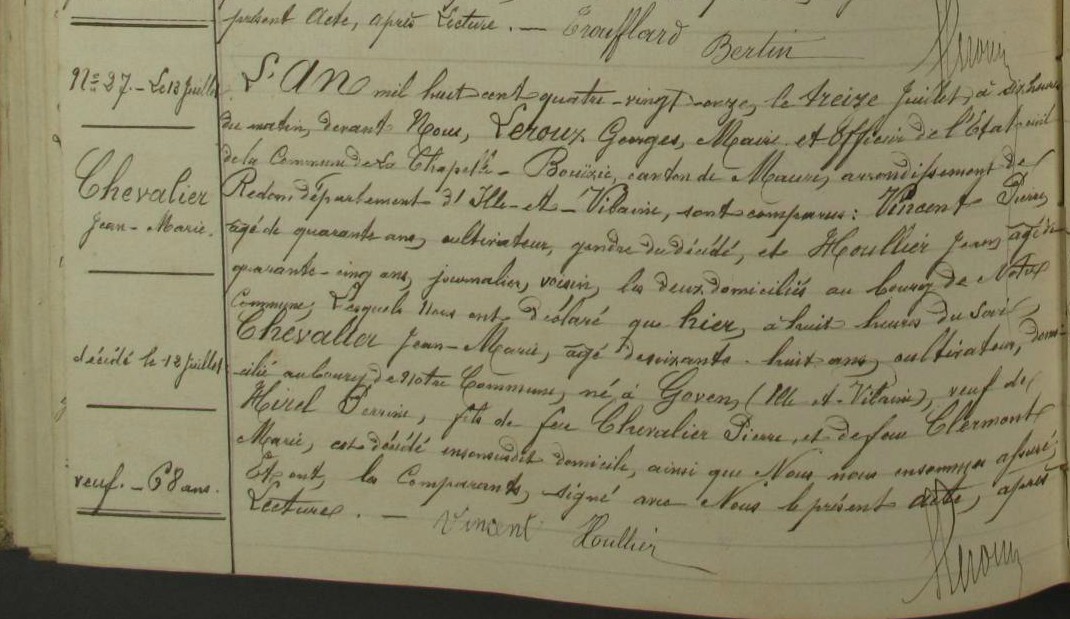 présent Acte, après Lecture. — Troufflard
Bertin
Leroux
Nº 27. — Le 13 Juillet
Chevalier
Jean-Marie.
décédé le 12 Juillet
veuf. — 68 ans.
L'AN mil huit cent quatre-vingt-onze, le treize Juillet, à dix heures
du matin, devant Nous, Leroux Georges, Maire et Officier de l'État-civil
de la Commune de La Chapelle-Bouëxic, canton de Maure, arrondissement de
Redon, Département d'Ille-et-Vilaine, sont comparus: Vincent Pierre,
âgé de quarante ans, cultivateur, gendre du décédé, et Houllier Jean, âgé de
quarante-cinq ans, journalier, voisin, les deux domiciliés au bourg de Notre
Commune, Lesquels Nous ont déclaré que hier, à huit heures du soir,
Chevalier Jean-Marie, âgé de soixante-huit ans, cultivateur, domi-
-cilié au bourg de Notre Commune, né à Goven, (Ille-et-Vilaine), veuf de
Hirel Perrine, fils de feu Chevalier Pierre, et de feue Clermont
Marie, est décédé en son susdit domicile, ainsi que Nous nous en sommes assuré;
Et ont, les Comparants, signé avec Nous le présent acte, après
Lecture. — Vincent Houllier
Leroux